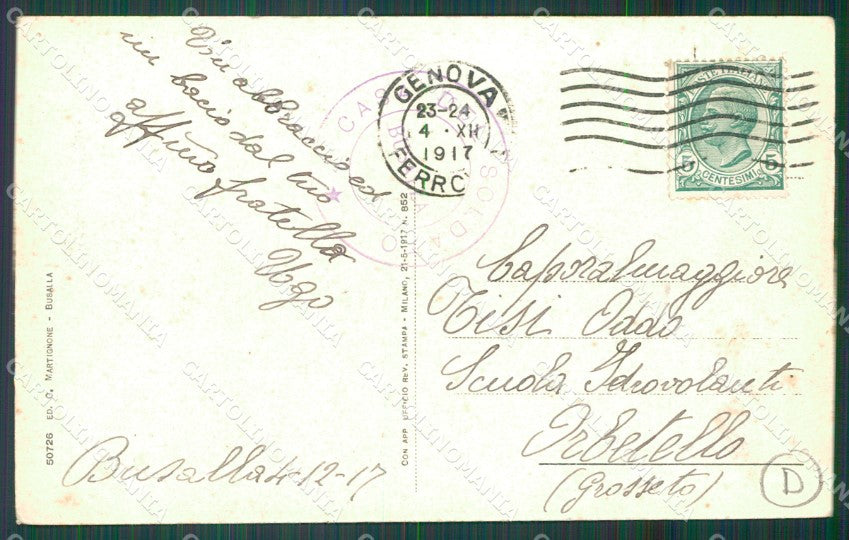 Un abbraccio ed
un bacio dal tuo
affmo fratello
Ugo
Busalla 4-12-17
50726 ED. C. MARTIGNONE - BUSALLA
CON APP. UFFICIO REV. STAMPA - MILANO, 21-5-1917 N. 852
CASA DEL SOLDATO
GENOVA
23-24
4 · XII
1917
FERROVIA
POSTE ITALIANE
5 5
CENTESIMI
Caporalmaggiore
Tisi Oddo
Scuola Idrovolanti
Orbetello
(Grosseto)
D
CARTOLINOMANIA